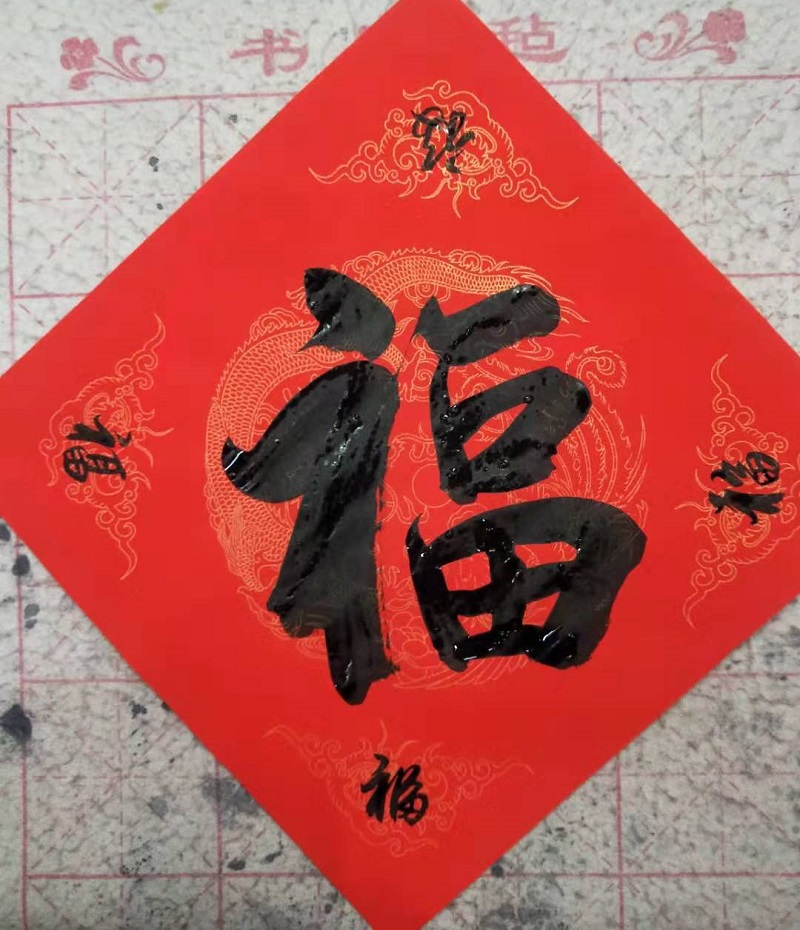 书 毡
福
福
福
福
福